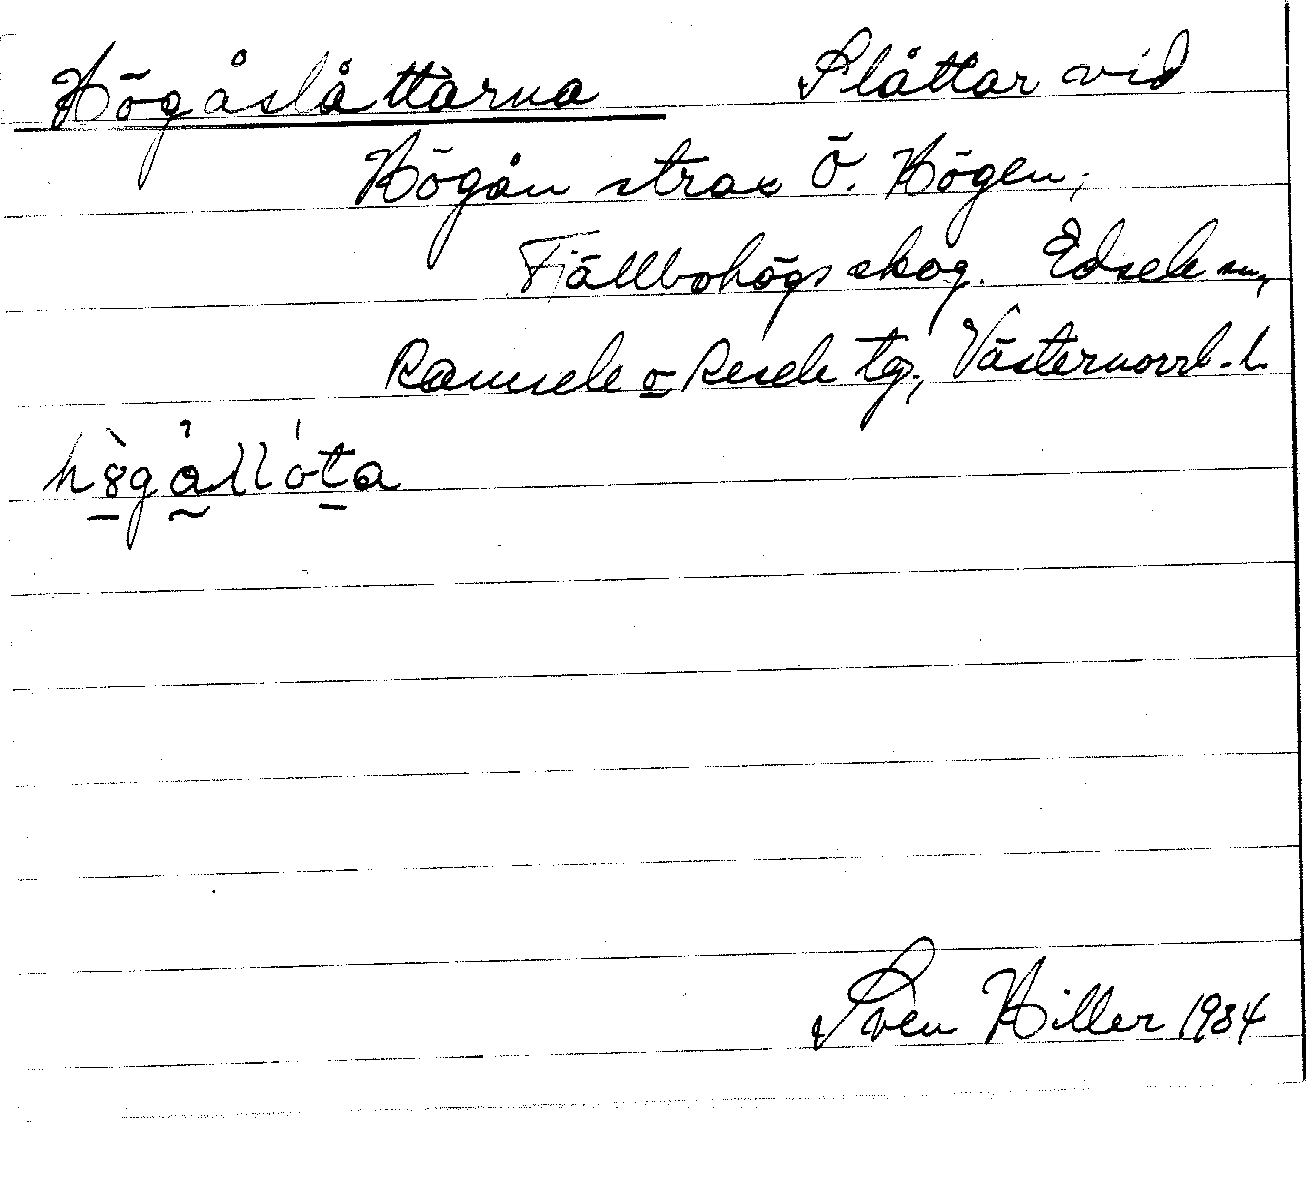 Högåslåttarna Slåttar vid
Högån strax Ö. Högen,
Fjällbohögs skog. Edsele sn,
Ramsele o Resele tg., Västernorrl. l.
Sven Hiller 1984